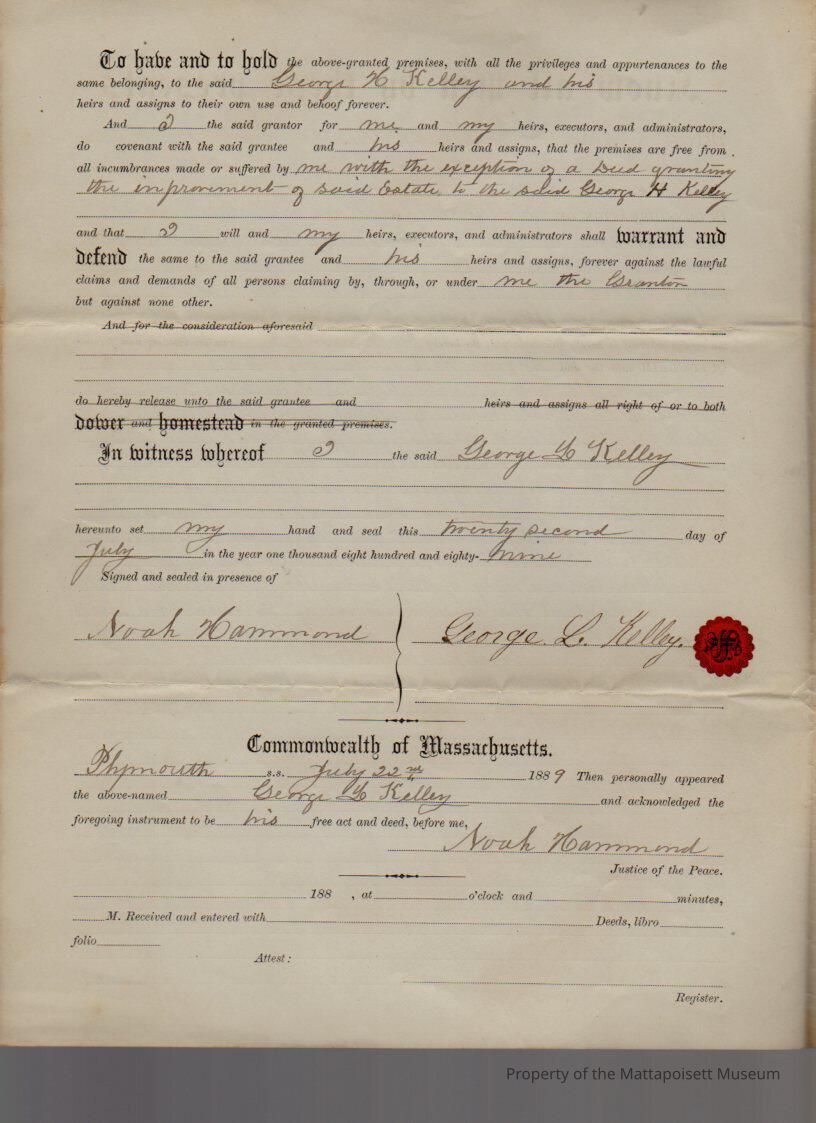 To have and to hold the above-granted premises, with all the privileges and appurtenances to the
same belonging, to the said George H Kelley and his
heirs and assigns to their own use and behoof forever.
And I the said grantor for me and my heirs, executors, and administrators,
do covenant with the said grantee and his heirs and assigns, that the premises are free from
all incumbrances made or suffered by me with the exception of a Deed granting
the improvement of said Estate to the said George H Kelley
and that I will and my heirs, executors, and administrators shall warrant and
defend the same to the said grantee and his heirs and assigns, forever against the lawful
claims and demands of all persons claiming by, through, or under me the Grantor
but against none other.
And for the consideration aforesaid
do hereby release unto the said grantee and heirs and assigns all right of or to both
dower and homestead in the granted premises.
In witness whereof I the said George L Kelley
hereunto set my hand and seal this twenty second day of
July in the year one thousand eight hundred and eighty-nine
Signed and sealed in presence of
Noah Hammond George L. Kelley.
Commonwealth of Massachusetts.
Plymouth s.s. July 22nd 1889 Then personally appeared
the above-named George L Kelley and acknowledged the
foregoing instrument to be his free act and deed, before me,
Noah Hammond
Justice of the Peace.
188 , at o'clock and minutes,
M. Received and entered with Deeds, libro
folio
Attest:
Register.
Property of the Mattapoisett Museum